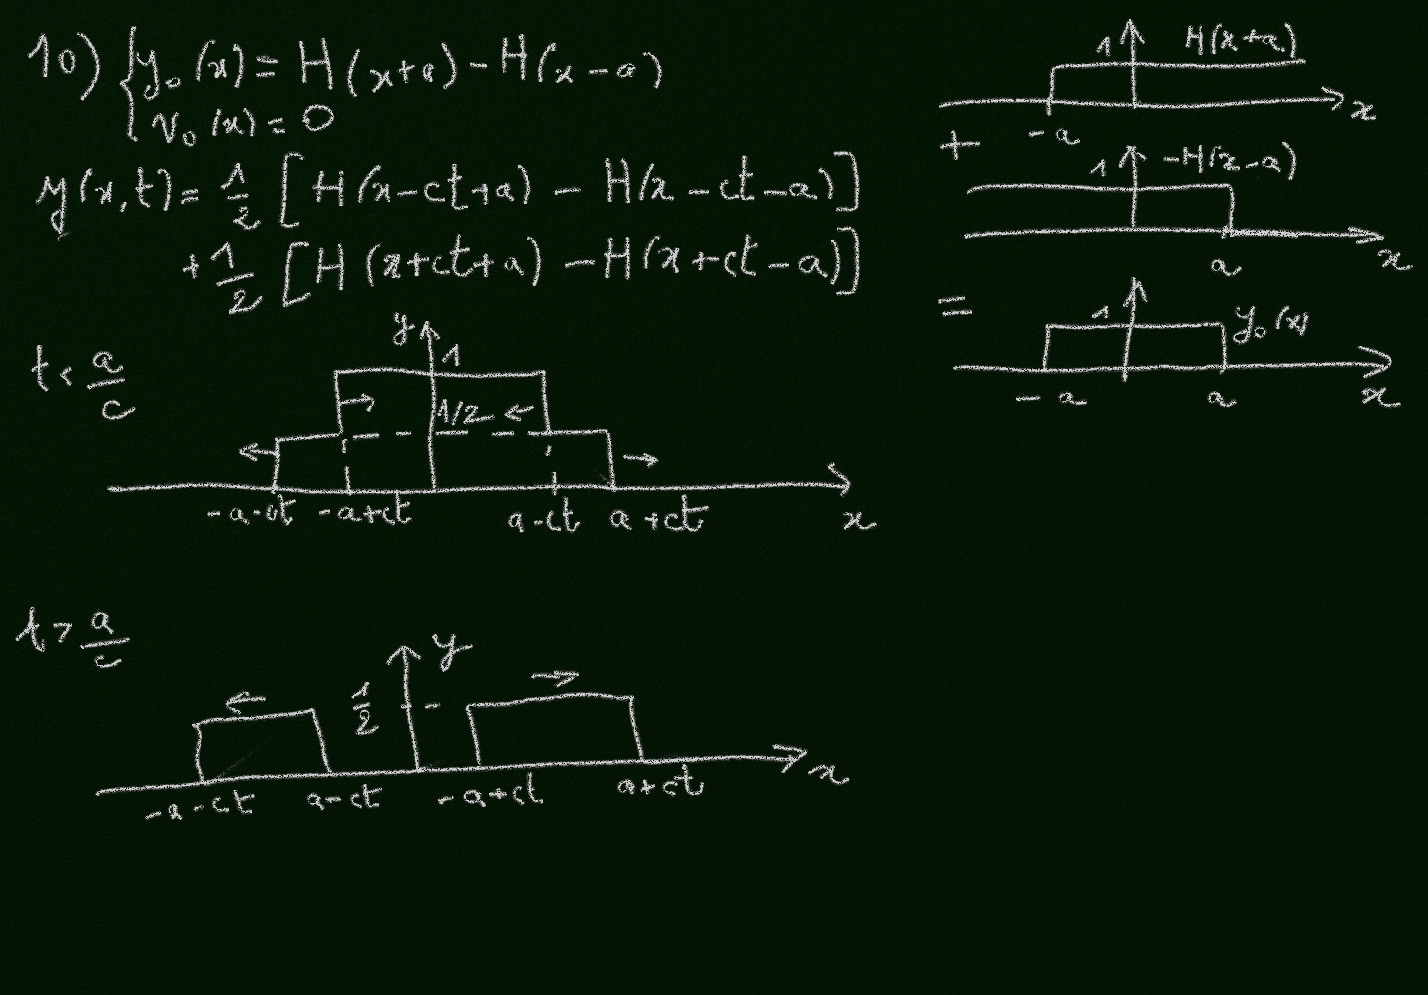 10) { y₀(x) = H(x+a) - H(x-a)
v₀(x) = 0
y(x,t) = 1/2 [H(x-ct+a) - H(x-ct-a)]
+ 1/2 [H(x+ct+a) - H(x+ct-a)]
t < a/c
y
1
1/2
-a-ct -a+ct a-ct a+ct x
t > a/c
y
1/2
-a-ct a-ct -a+ct a+ct x
1 H(x+a)
-a x
+
1 -H(x-a)
a x
=
1 y₀(x)
-a a x